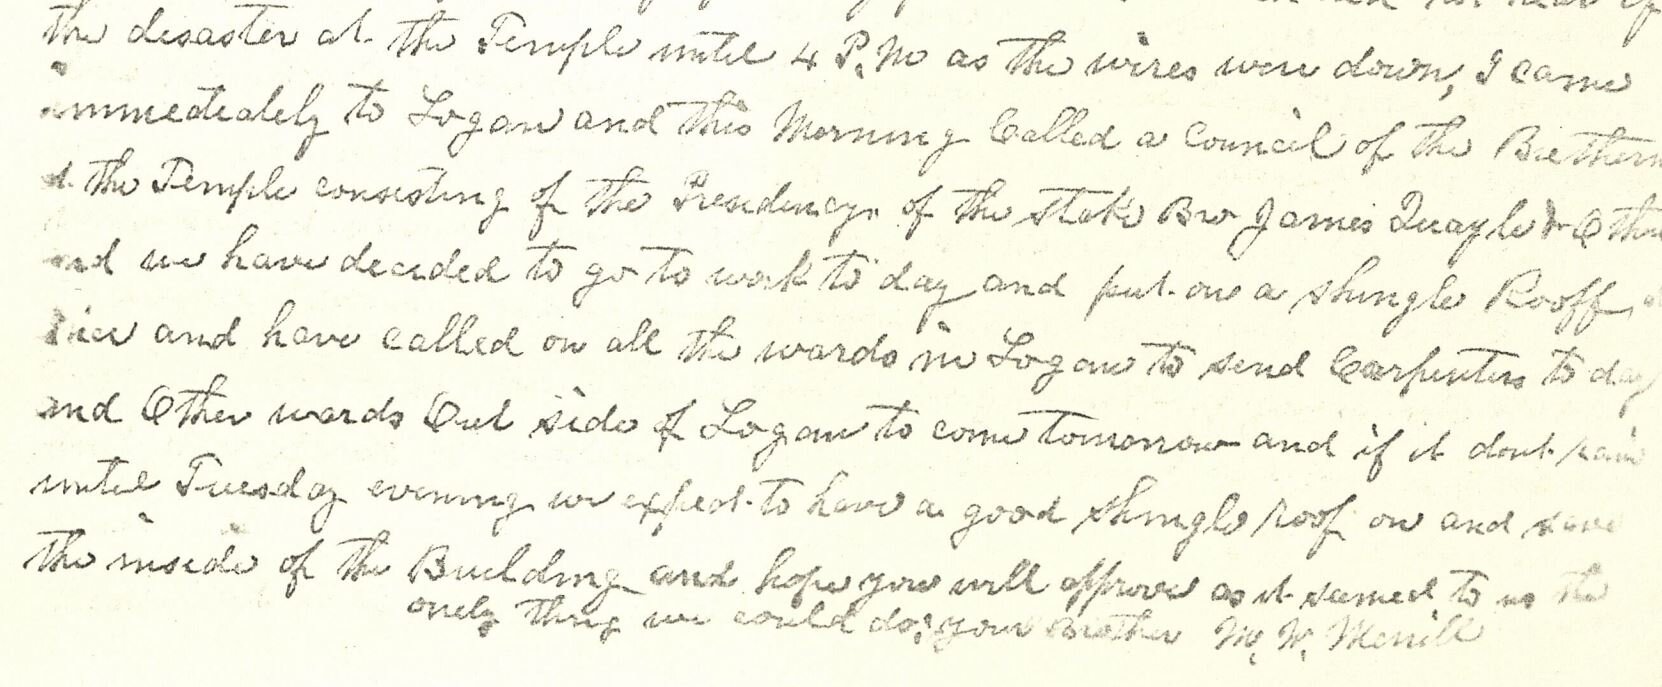 the disaster at the Temple until 4 P.M as the wires were down, I came
immediately to Logan and this Morning Called a Council of the Brethern
at the Temple consisting of the Presidency of the Stake Bro James Quayle & Othe
and we have decided to go to work to day and put on a shingle Rooff
and have called on all the wards in Logan to send Carpenters to day
and Other wards Out side of Logan to come tomorrow and if it dont rain
until Tuesday evening we expect to have a good shingle roof on and save
the inside of the Building and hope you will approve as it seemed to us the
onely thing we could do; your Brother M. W. Merrill